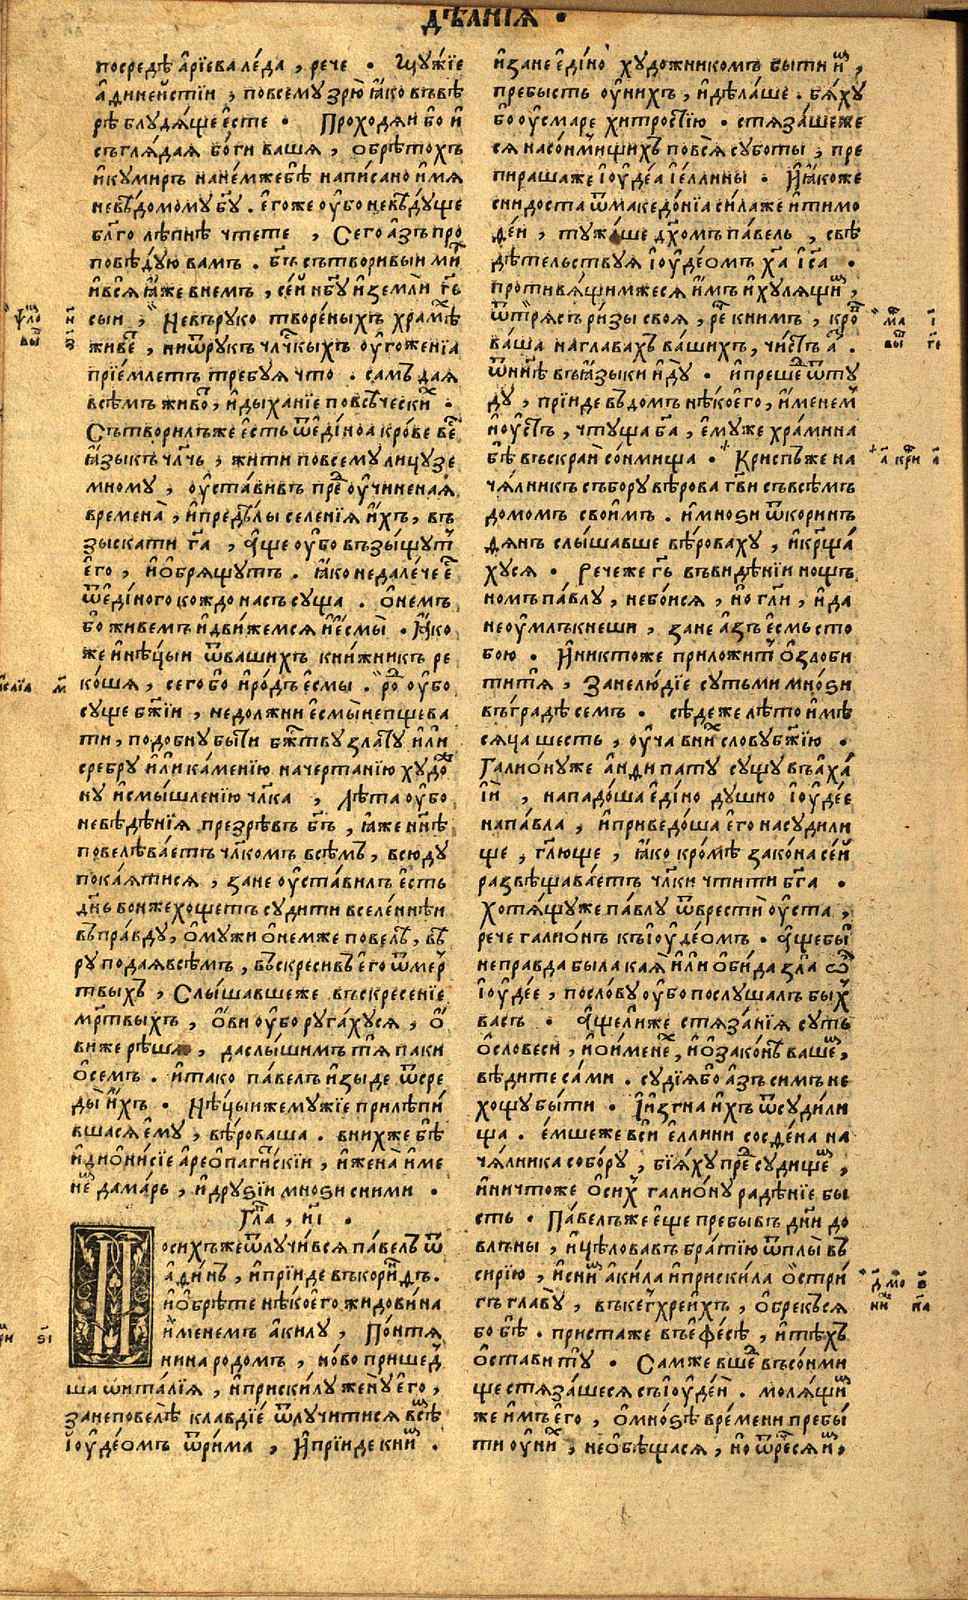 дѣанїѧ •
посредѣ а҆рїева ле́да , рече • Мꙋ́жїе
а҆диненстїи , по всемꙋ зрю̀ ꙗ҆́ко въ вѣ
рѣ блꙋдѧ́ще є҆сте • Проходѧ́и бо и҆
съглѧ́даѧ бо́ги ва́шѧ , ѡбрѣтохъ
и҆ кꙋмиръ на не́мже бѣ̀ написано и҆́мѧ
невѣ́домомꙋ бг҃ꙋ . є҆гоже ᲂу҆̀бо невѣ́дꙋще
бл҃голѣпнѣ чтете , Сего а҆́зъ про
повѣ́дꙋю вамъ . бг҃ъ сътворивыи ми́р
и҆ всѧ̀ ꙗ҆́же в немъ , се́й нб҃ꙋ и҆ землѝ гд҃ь
сыи , Не в рꙋкотворе́ныхъ храмѣ
живе́т , ни ѿ рꙋкъ чл҃чкыхъ ᲂу҆гоженїа
прїе́млетъ требꙋѧ что . самъ даѧ
всѣмъ живо́т , и҆ дыханїе по всѣческих .
Сътворилъ же есть ѿ є҆ди́ноа кро́ве ве́с
ꙗ҆зыкъ чл҃чь , жити по всемꙋ лицꙋ зе
мномꙋ , ᲂу҆ста́вивъ пред ᲂу҆чиненаѧ
времена̀ , и҆ предѣ́лы селенїѧ и҆́хъ , въ
зыскати гд҃а , а҆́ще ᲂу҆̀бо възы́щꙋт
є҆го , и҆ ѡ҆брѧщꙋтъ . ꙗ҆́ко недале́че є҆с
ѿ є҆ди́ного кождо насъ сꙋща . ѡ҆ немъ
бо живемъ и҆ движемсѧ и҆ є҆смы̀ . Ꙗ҆́ко
же и҆ нѣ́цыи ѿ вашихъ кни́жникъ ре
кошѧ , сего бо и҆ ро́дъ є҆смы . ро́д ᲂу҆̀бо
сꙋще бж҃їи , не должни є҆смы̀ непщева
ти , подобнꙋ бы́ти бж҃ествꙋ зла́тꙋ и҆лѝ
сребрꙋ и҆лѝ ка́менїю начертанїю хꙋдо́ж
нꙋ и҆ смышленїю чл҃ка , Лѣта ᲂу҆̀бо
невѣ́дѣнїѧ презрѣвъ бг҃ъ , ꙗ҆́же нн҃ѣ
повелѣва́етъ чл҃комъ всѣмъ , всюдꙋ
пока́ѧтисѧ , зане ᲂу҆ста́вилъ є҆сть
дн҃ь во н же хощетъ сꙋдити вселе́ннѣи
въ пра́вдꙋ , ѡ҆ мꙋжи ѡ҆ немже повелѣ̀ , вѣ
рꙋ подаѧ всѣмъ , въскресивъ є҆го ѿ мер
твыхъ , Слы́шавше же въскресенїе
мр҃твыхъ , ѡ҆́ви ᲂу҆̀бо рꙋга́хꙋсѧ , ѡ҆́
ви же рѣшѧ , да слы́шимъ тѧ̀ паки
ѡ҆ семъ . и҆ тако па́велъ и҆зы́де ѿ сре
ды̀ и҆́хъ • Нѣ́цыи же мꙋ́жїе прилѣпи́
вшасѧ є҆мꙋ̀ , вѣ́роваша . в них же бѣ̀
и҆ дїони́сїе а҆реопаги́тскїи , и҆ жена̀ и҆ме
нем да́марь , и҆ дрꙋзїи мнози с ними •
Гла́ва , иі •
По сихъ же ѿлꙋчи́всѧ па́велъ ѿ
а҆ди́нъ , и҆ прїиде въ кори́ндъ .
и҆ ѡ҆брѣ́те нѣ́коего жидови́на
и҆́менемъ а҆кѵлꙋ , По́нтѧ
нина родомъ , но́во пришед
ша ѿ ита́лїѧ , и҆ прискилꙋ женꙋ̀ є҆го ,
зане повелѣ̀ клавдїе ѿлꙋчитисѧ всѣм
і҆ꙋде́омъ ѿ ри́ма , и҆ прїиде к ним .
и҆ зане є҆ди́но хꙋдожникомъ быти и҆м ,
пребысть ᲂу҆ нихъ , и҆ дѣ́лаше . бѧ́хꙋ
бо ᲂу҆смаре хитростїю . стѧза́шеже
сѧ на со́нмищихъ по всѧ̀ сꙋботы , пре
пираша же і҆ꙋде́а и҆ е́ллины . И҆ ꙗ҆коже
снидоста ѿ македо́нїа сила же и҆ тимо
ѳе́и , тꙋжа́ше дх҃омъ па́вель , свѣ
дѣтельствꙋѧ і҆ꙋде́омъ хр҃а іс҃а .
противѧ́щимжесѧ и҆́мъ и҆ хꙋлѧ́щим ,
ѿтрѧсъ ри́зы своѧ , реч к нимъ , кро́в
ва́ша на главахъ ва́шихъ , чи́стъ а҆з .
ѿнн҃ѣ въ ꙗ҆зы́ки и҆дꙋ . и҆ преше́д ѿтꙋ
дꙋ , прїиде въ домъ нѣ́коего , и҆́менем
и҆ꙋ́стъ , чтꙋща бг҃а , є҆мꙋже хра́мина
бѣ̀ въскрай со́нмища . Криспъ же на
чѧ́лникъ съборꙋ вѣ́рова гд҃ви съ всѣмъ
домомъ свои́мъ . и҆ мнози ѿ коринтъ
дѧнъ слы́шавше вѣ́роваху , и҆ кр҃ща́
хꙋсѧ . Рече же гд҃ь въ видѣ́нїи нощъ
номъ па́влꙋ , не бо́исѧ , но гл҃и , и҆ да
не ᲂу҆млъкнеши , зане а҆́зъ є҆́смь с то
бою . И҆ никтоже приложит ѡ҆зло́би
ти тѧ̀ , Зане лю́дїе сꙋть ми мно́зи
въ гра́дѣ семъ . сѣ́де же лѣто и҆ мѣ
сѧца шесть , ᲂу҆ча̀ в них словꙋ бж҃їю .
Галїо́нꙋ же а҆нди́патꙋ сꙋщꙋ въ а҆ха́
їи , нападо́ша є҆ди́но дꙋшно і҆ꙋде́е
на па́вла , и҆ приведо́ша є҆го на сꙋдили
ще , гл҃юще , ꙗ҆́ко кро́мѣ зако́на се́й
развѣщава́етъ чл҃ки чти́ти бг҃а .
хотѧ́щꙋ же па́влꙋ ѿврести ᲂу҆ста ,
рече галио́нъ къ і҆ꙋде́омъ . а҆́ще бы́
неправда была каѧ̀ и҆лѝ ѡ҆би́да зла̀ ѽ
і҆ꙋде́е , по сло́вꙋ ᲂу҆̀бо послꙋшалъ бых
васъ . а҆́ще ли же стѧза́нїѧ сꙋть
ѡ҆ словеси , и҆ ѡ҆ и҆мене́х , и҆ ѡ҆ зако́нѣ ва́шем ,
вѣ́дите са́ми . сꙋдїѧ̀ бо а҆́зъ симъ не
хощꙋ бы́ти . И҆ и҆згна и҆́хъ ѿ сꙋдили
ща . є҆́мше же вси є҆́ллини сосде́на на
чѧ́лника собо́рꙋ , бїѧ́хꙋ пред сꙋдищем ,
и҆ ничтоже ѡ҆ сих галио́нꙋ радѣнїе бы
сть . Па́велъ же є҆ще пребывъ дн҃и до
влъны , и҆ цѣ́ловавъ бра́тїю ѿплы̀ въ
сирїю , и҆ с ним а҆кила и҆ прискила ѡстри́
гъ главꙋ̀ , въ кегхреи́хъ , ѡ҆брекъсѧ
бо бѣ̀ . приста же въ є҆фе́сѣ , и҆ тѣхъ
ѡ҆стави тꙋ̀ . Сам же вше́д въ со́нми
ще стѧза́шесѧ съ і҆ꙋде́и . молѧ́щим
же и҆мъ є҆го , ѡ҆ мно́зѣ вре́мени пребы́
ти ᲂу҆ них , не ѡ҆бѣща́сѧ , но ѿре́чесѧ им ,